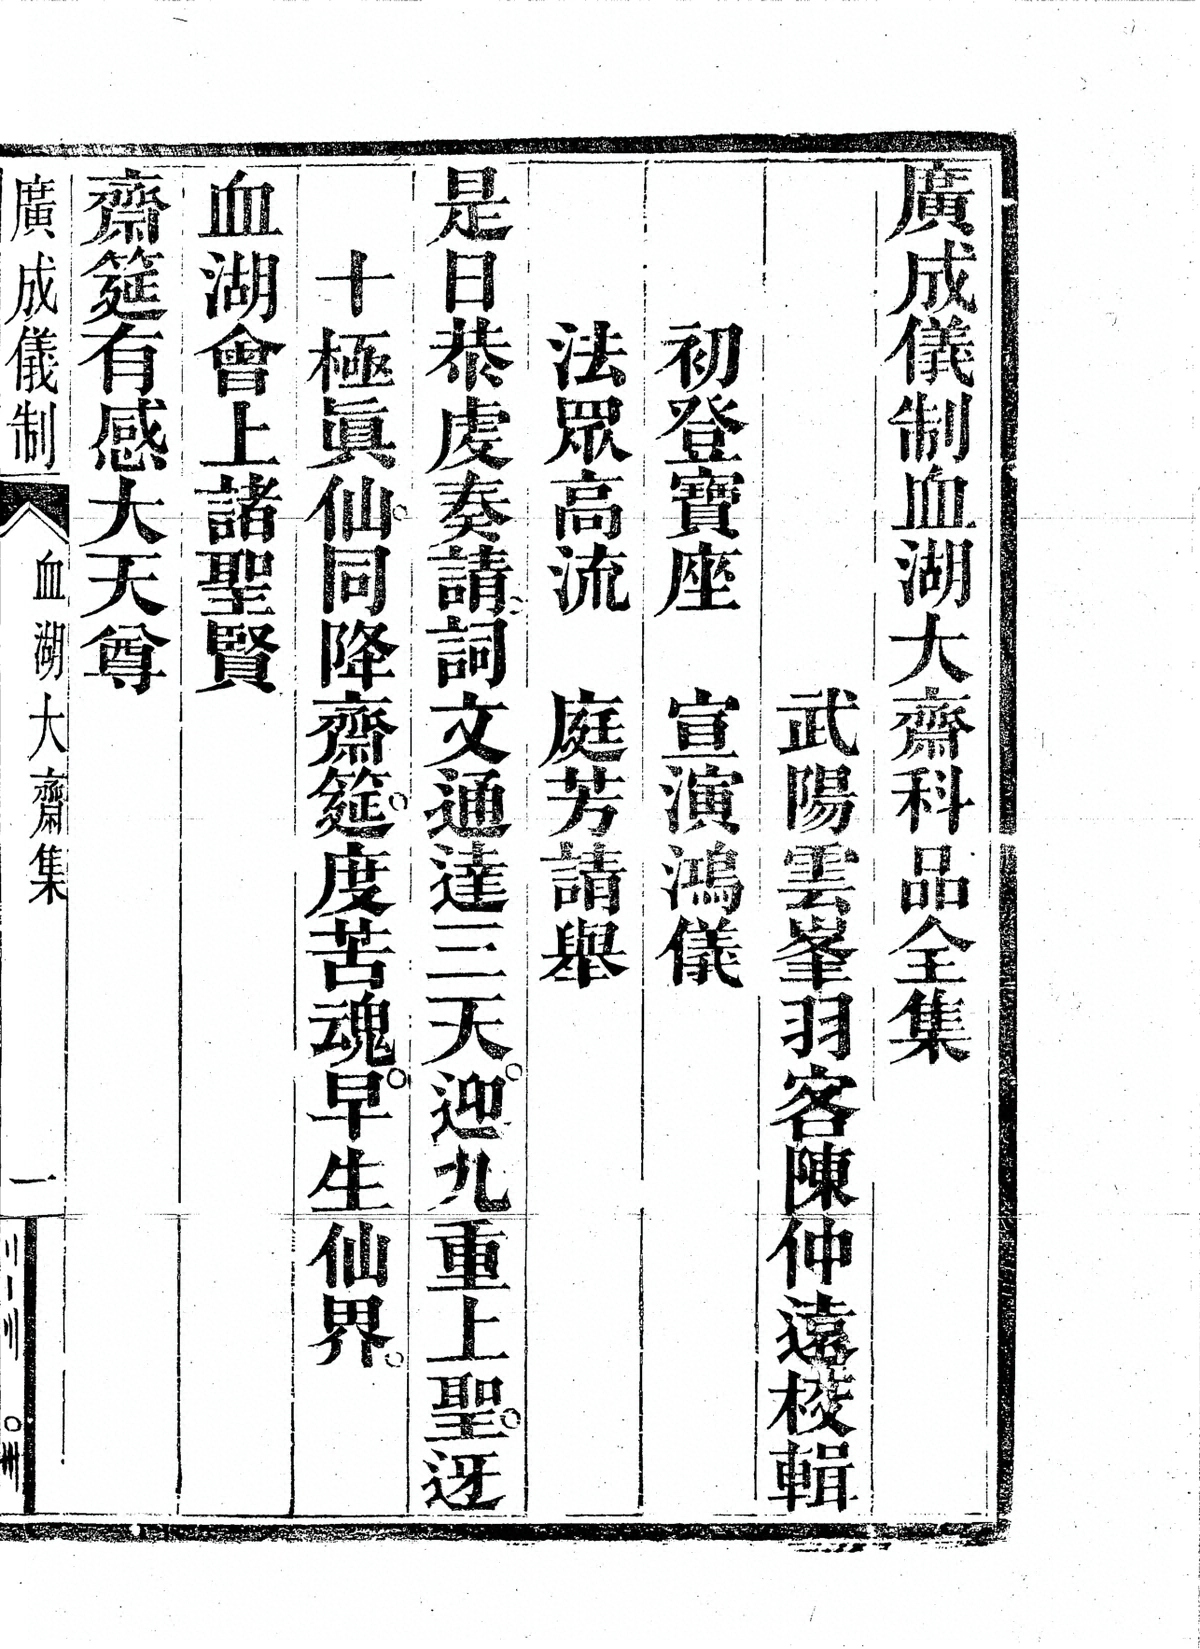 廣成儀制血湖大齋科品全集
武陽雲峯羽客陳仲遠校輯
初登寶座　宣演鴻儀
法眾高流　庭芳請舉
是日恭虔奏請詞文通達三天迎九重上聖迓
十極眞仙同降齋筵度苦魂早生仙界
血湖會上諸聖賢
齋筵有感大天尊
廣成儀制　血湖大齋集　一